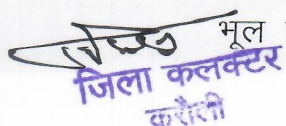 भूल
जिला कलक्टर
करौली